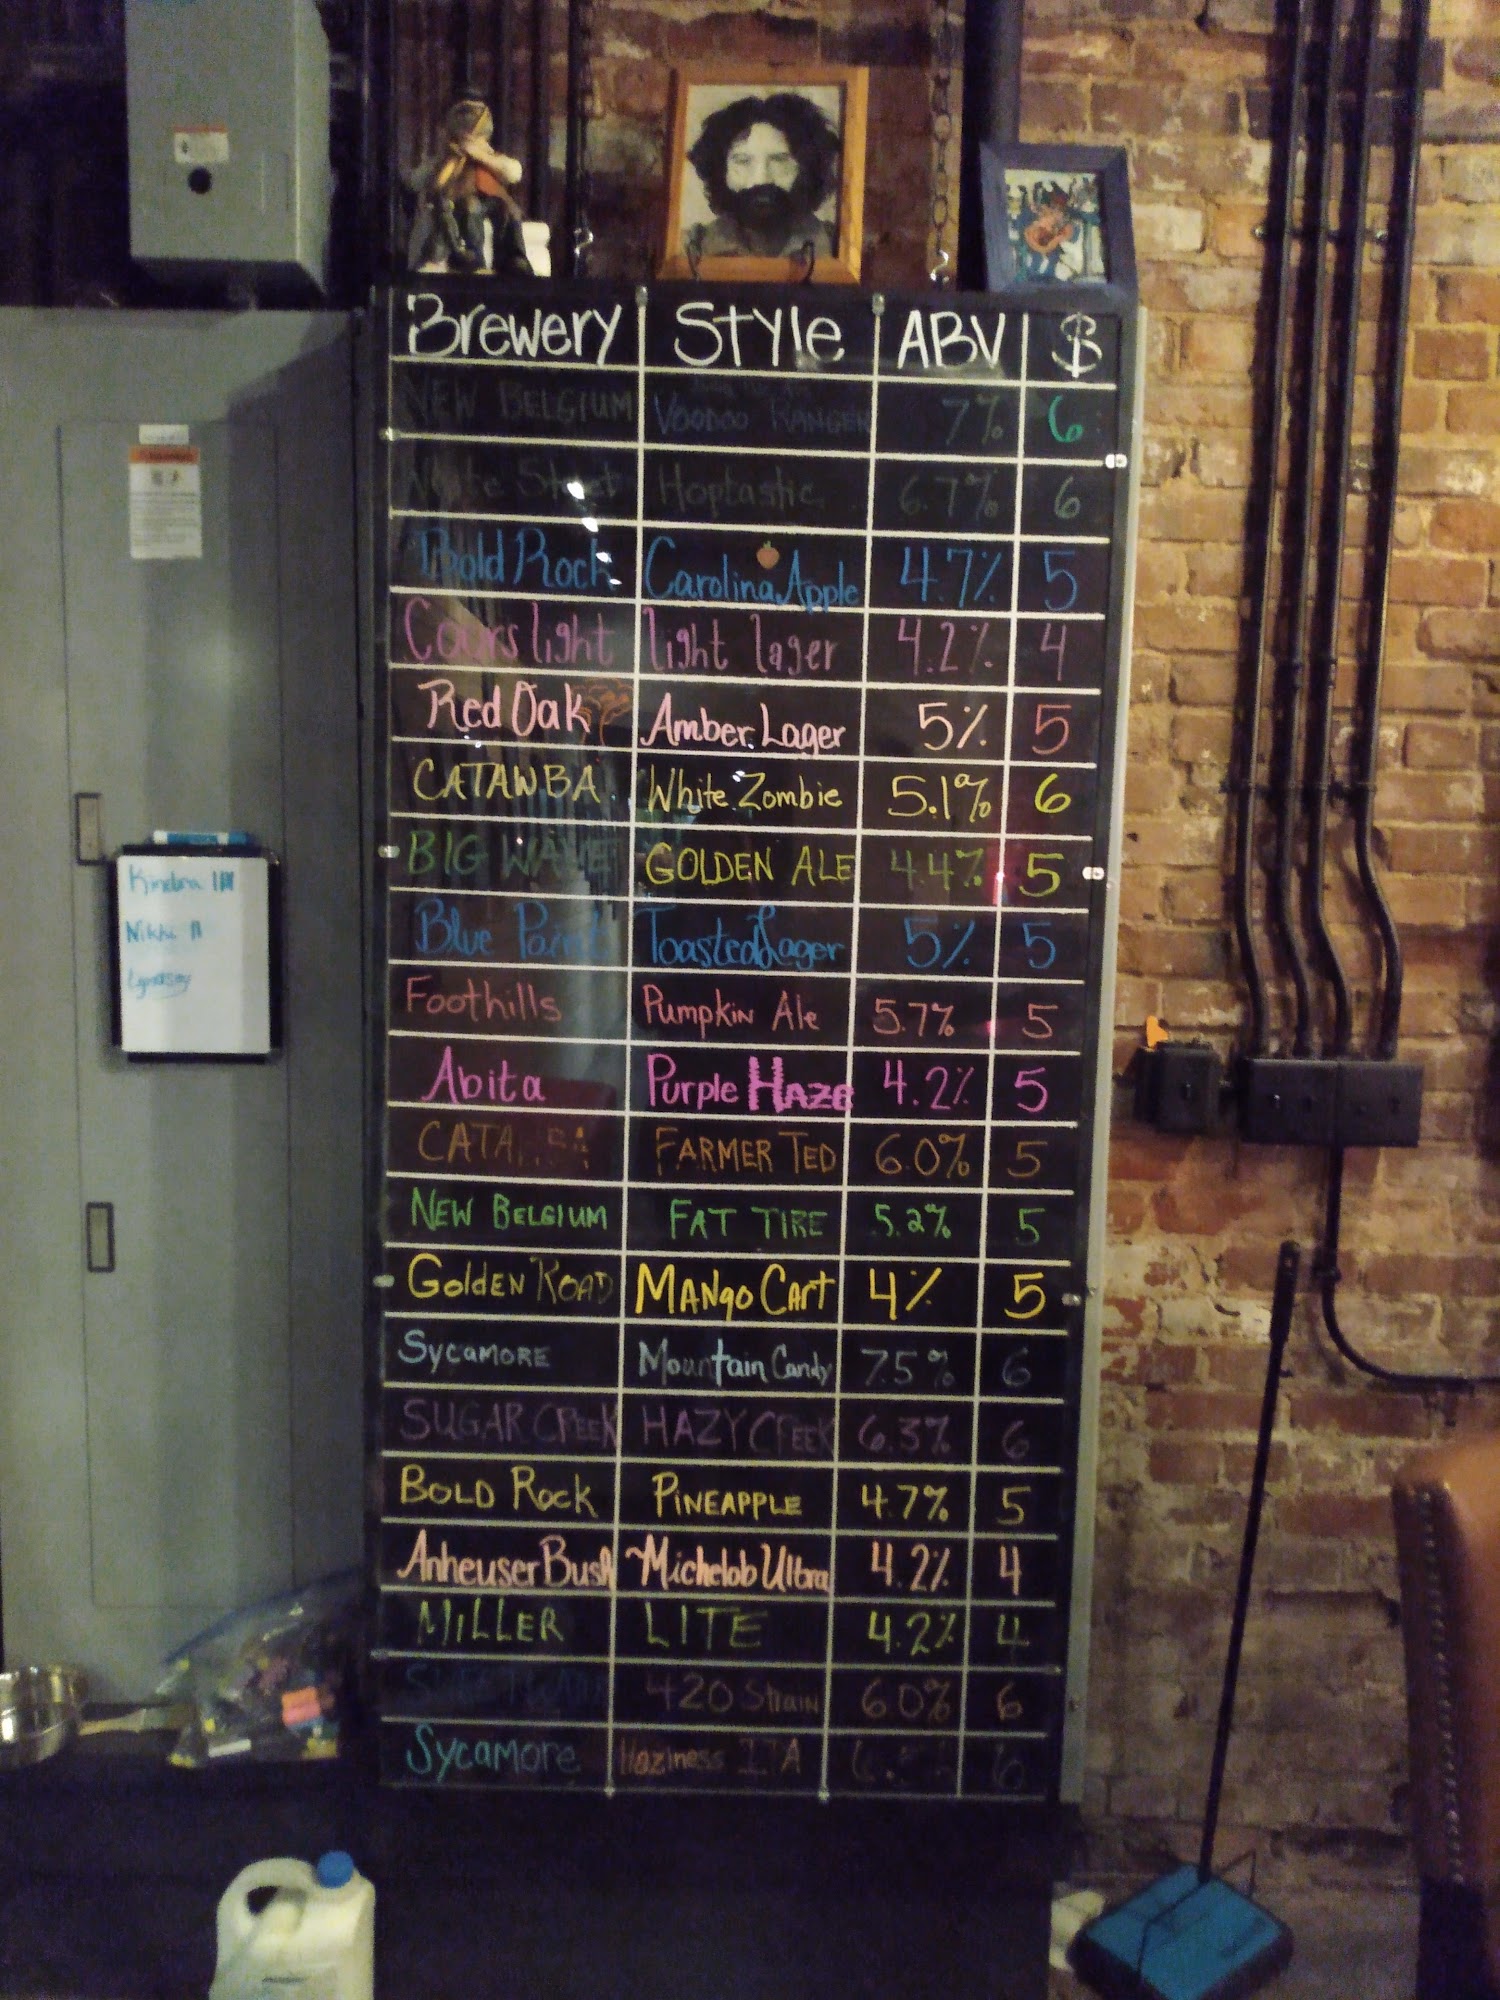 Brewery Style ABV $
NEW BELGIUM VOODOO RANGER 7% 6
White Street Hoptastic 6.7% 6
Bold Rock Carolina Apple 4.7% 5
Coors light light lager 4.2% 4
Red Oak Amber Lager 5% 5
CATAWBA White Zombie 5.1% 6
BIG WAVE GOLDEN ALE 4.4% 5
Blue Point Toasted Lager 5% 5
Foothills Pumpkin Ale 5.7% 5
Abita Purple HAZE 4.2% 5
FARMER TED 6.0% 5
NEW BELGIUM FAT TIRE 5.2% 5
Golden ROAD MANgo Cart 4% 5
Sycamore Mountain Candy 7.5% 6
SUGAR CREEK HAZY CREEK 6.3% 6
BOLD ROCK PINEAPPLE 4.7% 5
Anheuser Bush Michelob Ultra 4.2% 4
MILLER LITE 4.2% 4
420 Strain 6.0% 6
Sycamore Haziness IPA 6
Kindra
Nikki II
Lyndsey